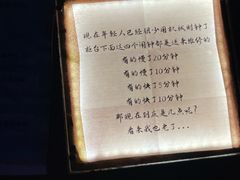 现在年轻人已经很少用机械闹钟了
柜台下面这四个闹钟都是送来维修的
有的慢了20分钟
有的慢了10分钟
有的快了5分钟
有的快了10分钟
那现在到底是几点呢?
看来我也老了...